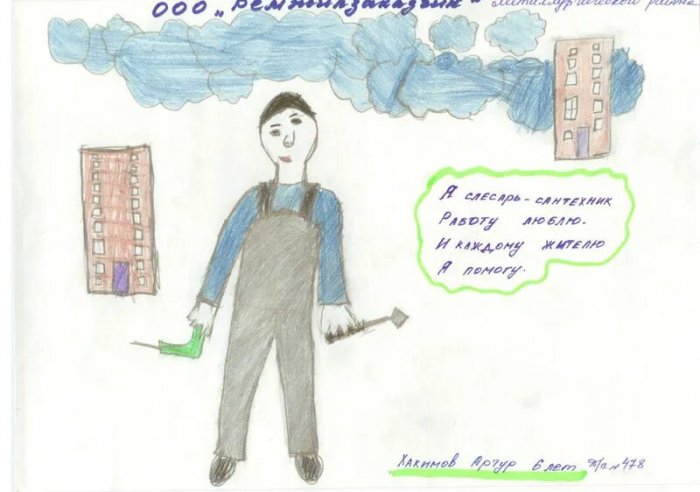 ООО „Ремжилзаказчик" Металлургический район
Я слесарь-сантехник
Работу люблю.
И каждому жителю
Я помогу.
Хакимов Артур 6 лет д/с №478